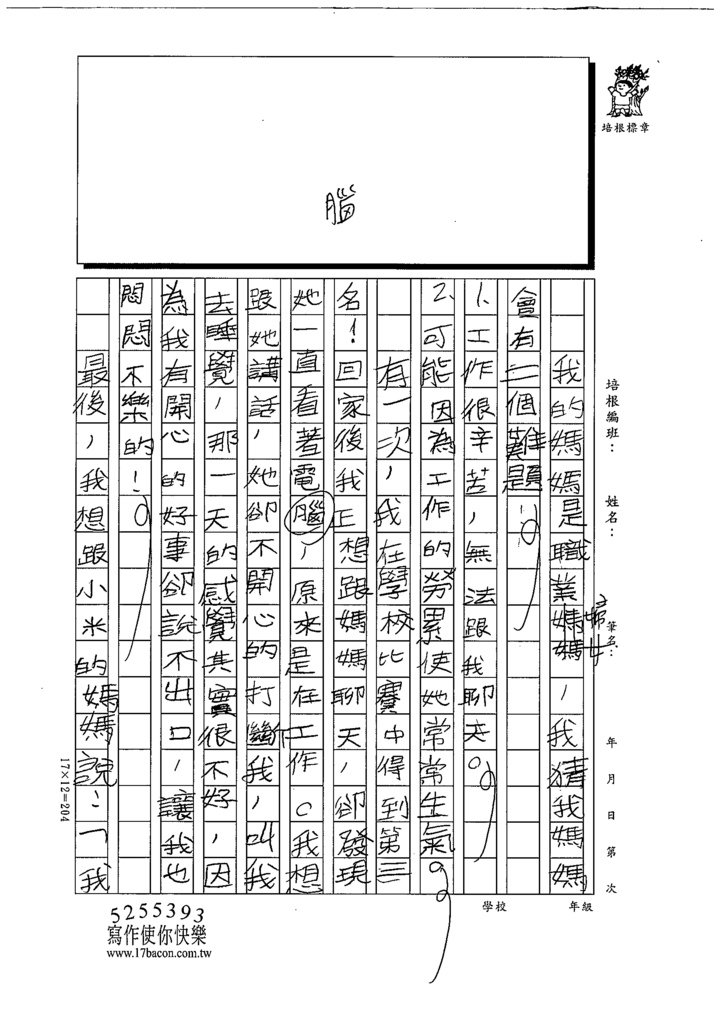 腦
培根標章
培根編班：
姓名：
筆名：
年 月 日 第 次
我的媽媽是職業婦女，我猜我媽媽
會有二個難題：
1.工作很辛苦，無法跟我聊天。
2.可能因為工作的勞累使她常常生氣。
有一次，我在學校比賽中得到第三
名！回家後我正想跟媽媽聊天，卻發現
她一直看著電腦，原來是在工作。我想
跟她講話，她卻不開心的打斷我，叫我
去睡覺，那一天的感覺其實很不好，因
為我有開心的好事卻說不出口，讓我也
悶悶不樂的！
最後，我想跟小米的媽媽說：「我
17×12=204
學校
年級
5255393
寫作使你快樂
www.17bacon.com.tw